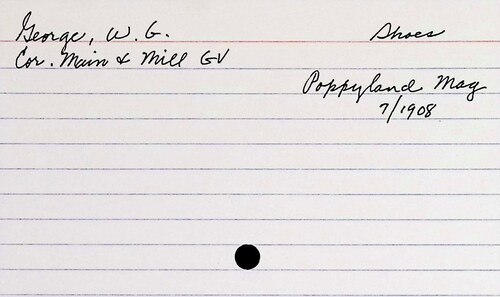 George, W. G. Shoes
Cor. Main & Mill GV
Poppyland Mag
7/1908